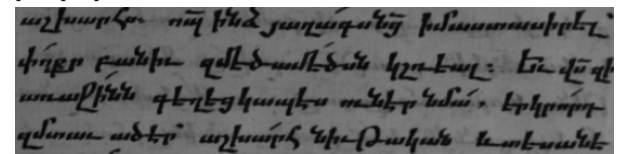 աշխարհս. որպ ինձ յաղագս նց իմաստասիրել՝
փոքր բանիւ զմեծամեծսն կշռեալ։ Եւ վս զի
առաջինն գեղեցկապէս ունէր նմա. երկրորդ
զմտաւ ածէր՝ աշխարհ նիւթական և տեսանե